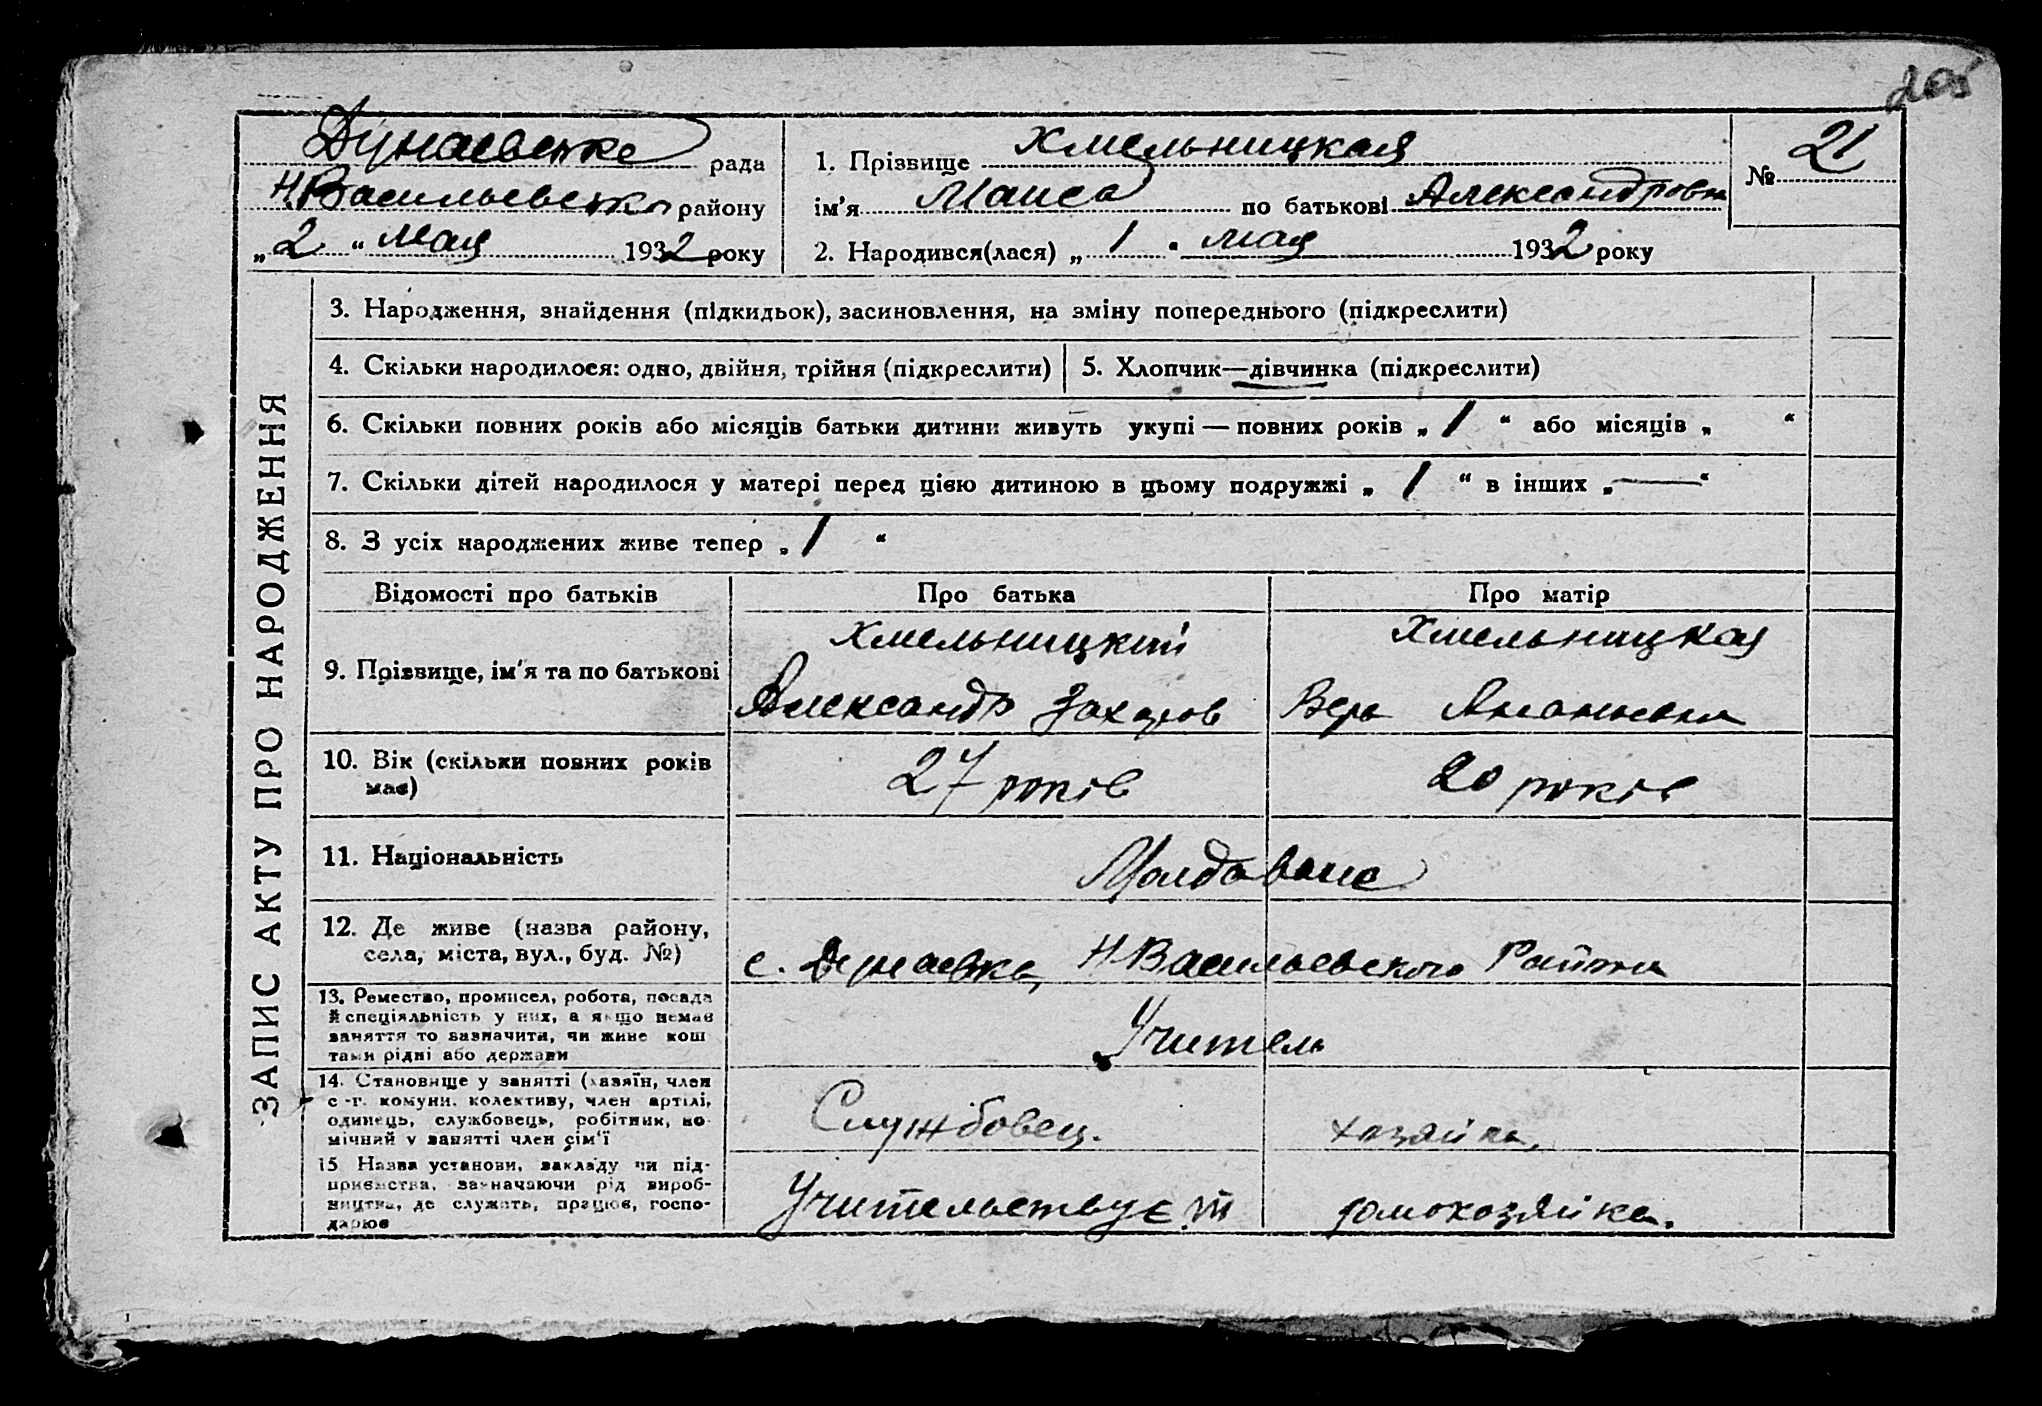 205
Дунаевske рада
Н.Васильевско району
„2“ мая 1932 року
1. Прізвище Хмельницкая
ім'я Маиса по батькові Александровн
2. Народився(лася) „1“ мая 1932 року
№ 21
ЗАПИС АКТУ ПРО НАРОДЖЕННЯ
3. Народження, знайдення (підкидьок), засиновлення, на зміну попереднього (підкреслити)
4. Скільки народилося: одно, двійня, трійня (підкреслити)
5. Хлопчик—дівчинка (підкреслити)
6. Скільки повних років або місяців батьки дитини живуть укупі — повних років „1“ або місяців „ “
7. Скільки дітей народилося у матері перед цією дитиною в цьому подружжі „1“ в інших „—“
8. З усіх народжених живе тепер „1“
Відомості про батьків Про батька Про матір
9. Прізвище, ім'я та по батькові
Хмельницкий
Александр Захаров
Хмельницкая
Вера Ананьевна
10. Вік (скільки повних років
має)
27 років
20 років
11. Національність
Молдаване
12. Де живе (назва району,
села, міста, вул., буд. №)
с. Дунаевка, Н-Васильевского Района
13. Ремество, промисел, робота, посада
й спеціяльність у них, а якщо немає
заняття то зазначити, чи живе кош
тами рідні або держави
Учитель
14. Становище у занятті (хазяїн, член
с.-г. комуни, колективу, член артілі,
одинець, службовець, робітник, по-
мічний у занятті член сім'ї
Службовец.
хозяйка,
15 Назва установи, закладу чи під-
приємства, зазначаючи рід вироб-
ництва, де служить, працює, госпо-
дарює
Учительствує
домохозяйка.